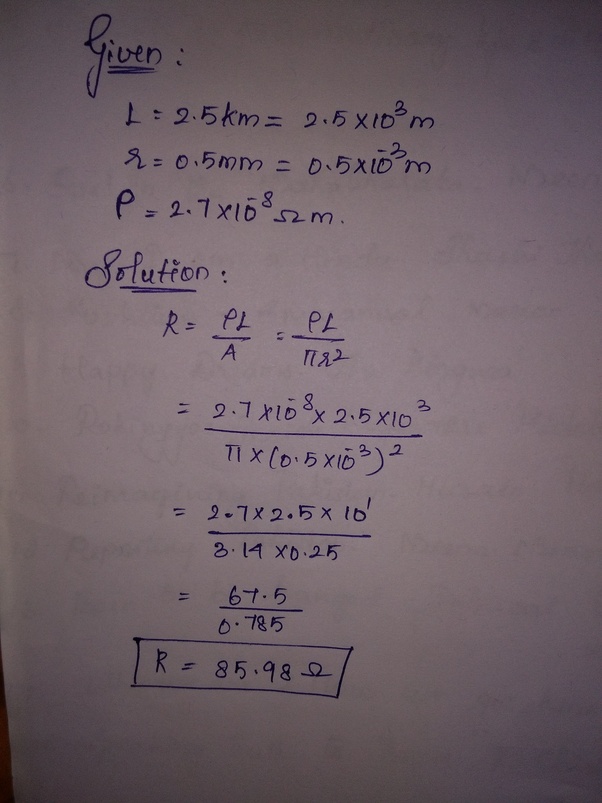 Given:
L = 2.5km = 2.5×10³m
r = 0.5mm = 0.5×10⁻³m
ρ = 2.7×10⁻⁸Ωm.
Solution:
R = ρL/A = ρL/πr²
= 2.7×10⁻⁸×2.5×10³/π×(0.5×10⁻³)²
= 2.7×2.5×10¹/3.14×0.25
= 67.5/0.785
R = 85.98Ω